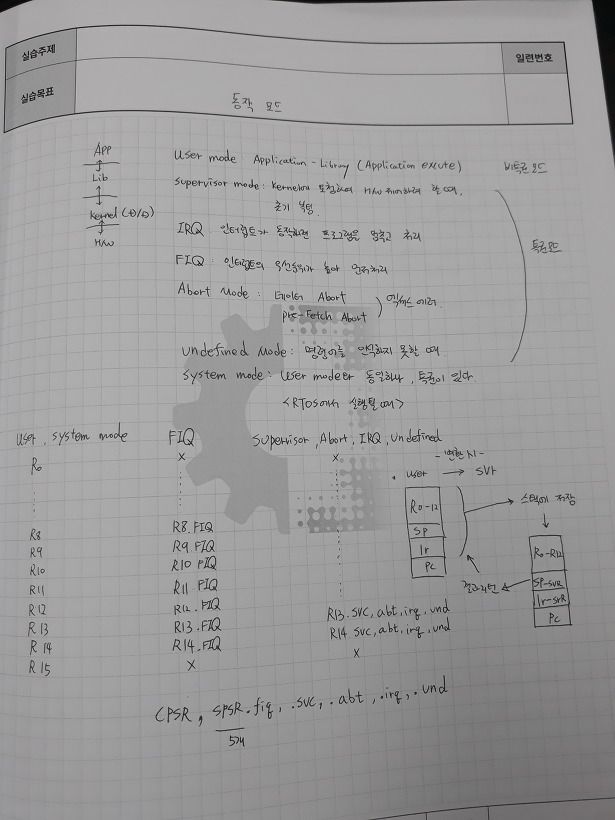 실습주제
일련번호
실습목표
동작 모드
App
Lib
Kernel (O/S)
H/W
User mode : Application - Library (Application execute) 비특권 모드
Supervisor mode : Kernel이 포함하여 H/W 제어하려 할 때,
초기 부팅.
IRQ : 인터럽트가 동작하면 프로그램을 멈추고 처리
FIQ : 인터럽트의 우선순위가 높아 먼저처리
특권모드
Abort Mode : 데이터 Abort
Pre-Fetch Abort
엑세스 에러.
Undefined Mode : 명령어를 인식하지 못할 때
System mode : User mode와 동일하나, 특권이 있다
<RTOS에서 실행될 때>
User, system mode FIQ Supervisor, Abort, IRQ, Undefined
R0 x x
- 변환 시 -
user → SVC
R0-12
SP
lr
PC
스택에 저장
R0-R12
SP-SVR
lr-SVR
PC
결과리턴
R8 R8.FIQ
R9 R9.FIQ
R10 R10 FIQ
R11 R11 FIQ
R12 R12.FIQ
R13 R13.FIQ R13.svc, abt, irq, und
R14 R14.FIQ R14 svc, abt, irq, und
R15 x x
CPSR, SPSR.fiq, .svc, .abt, .irq, .und
5개